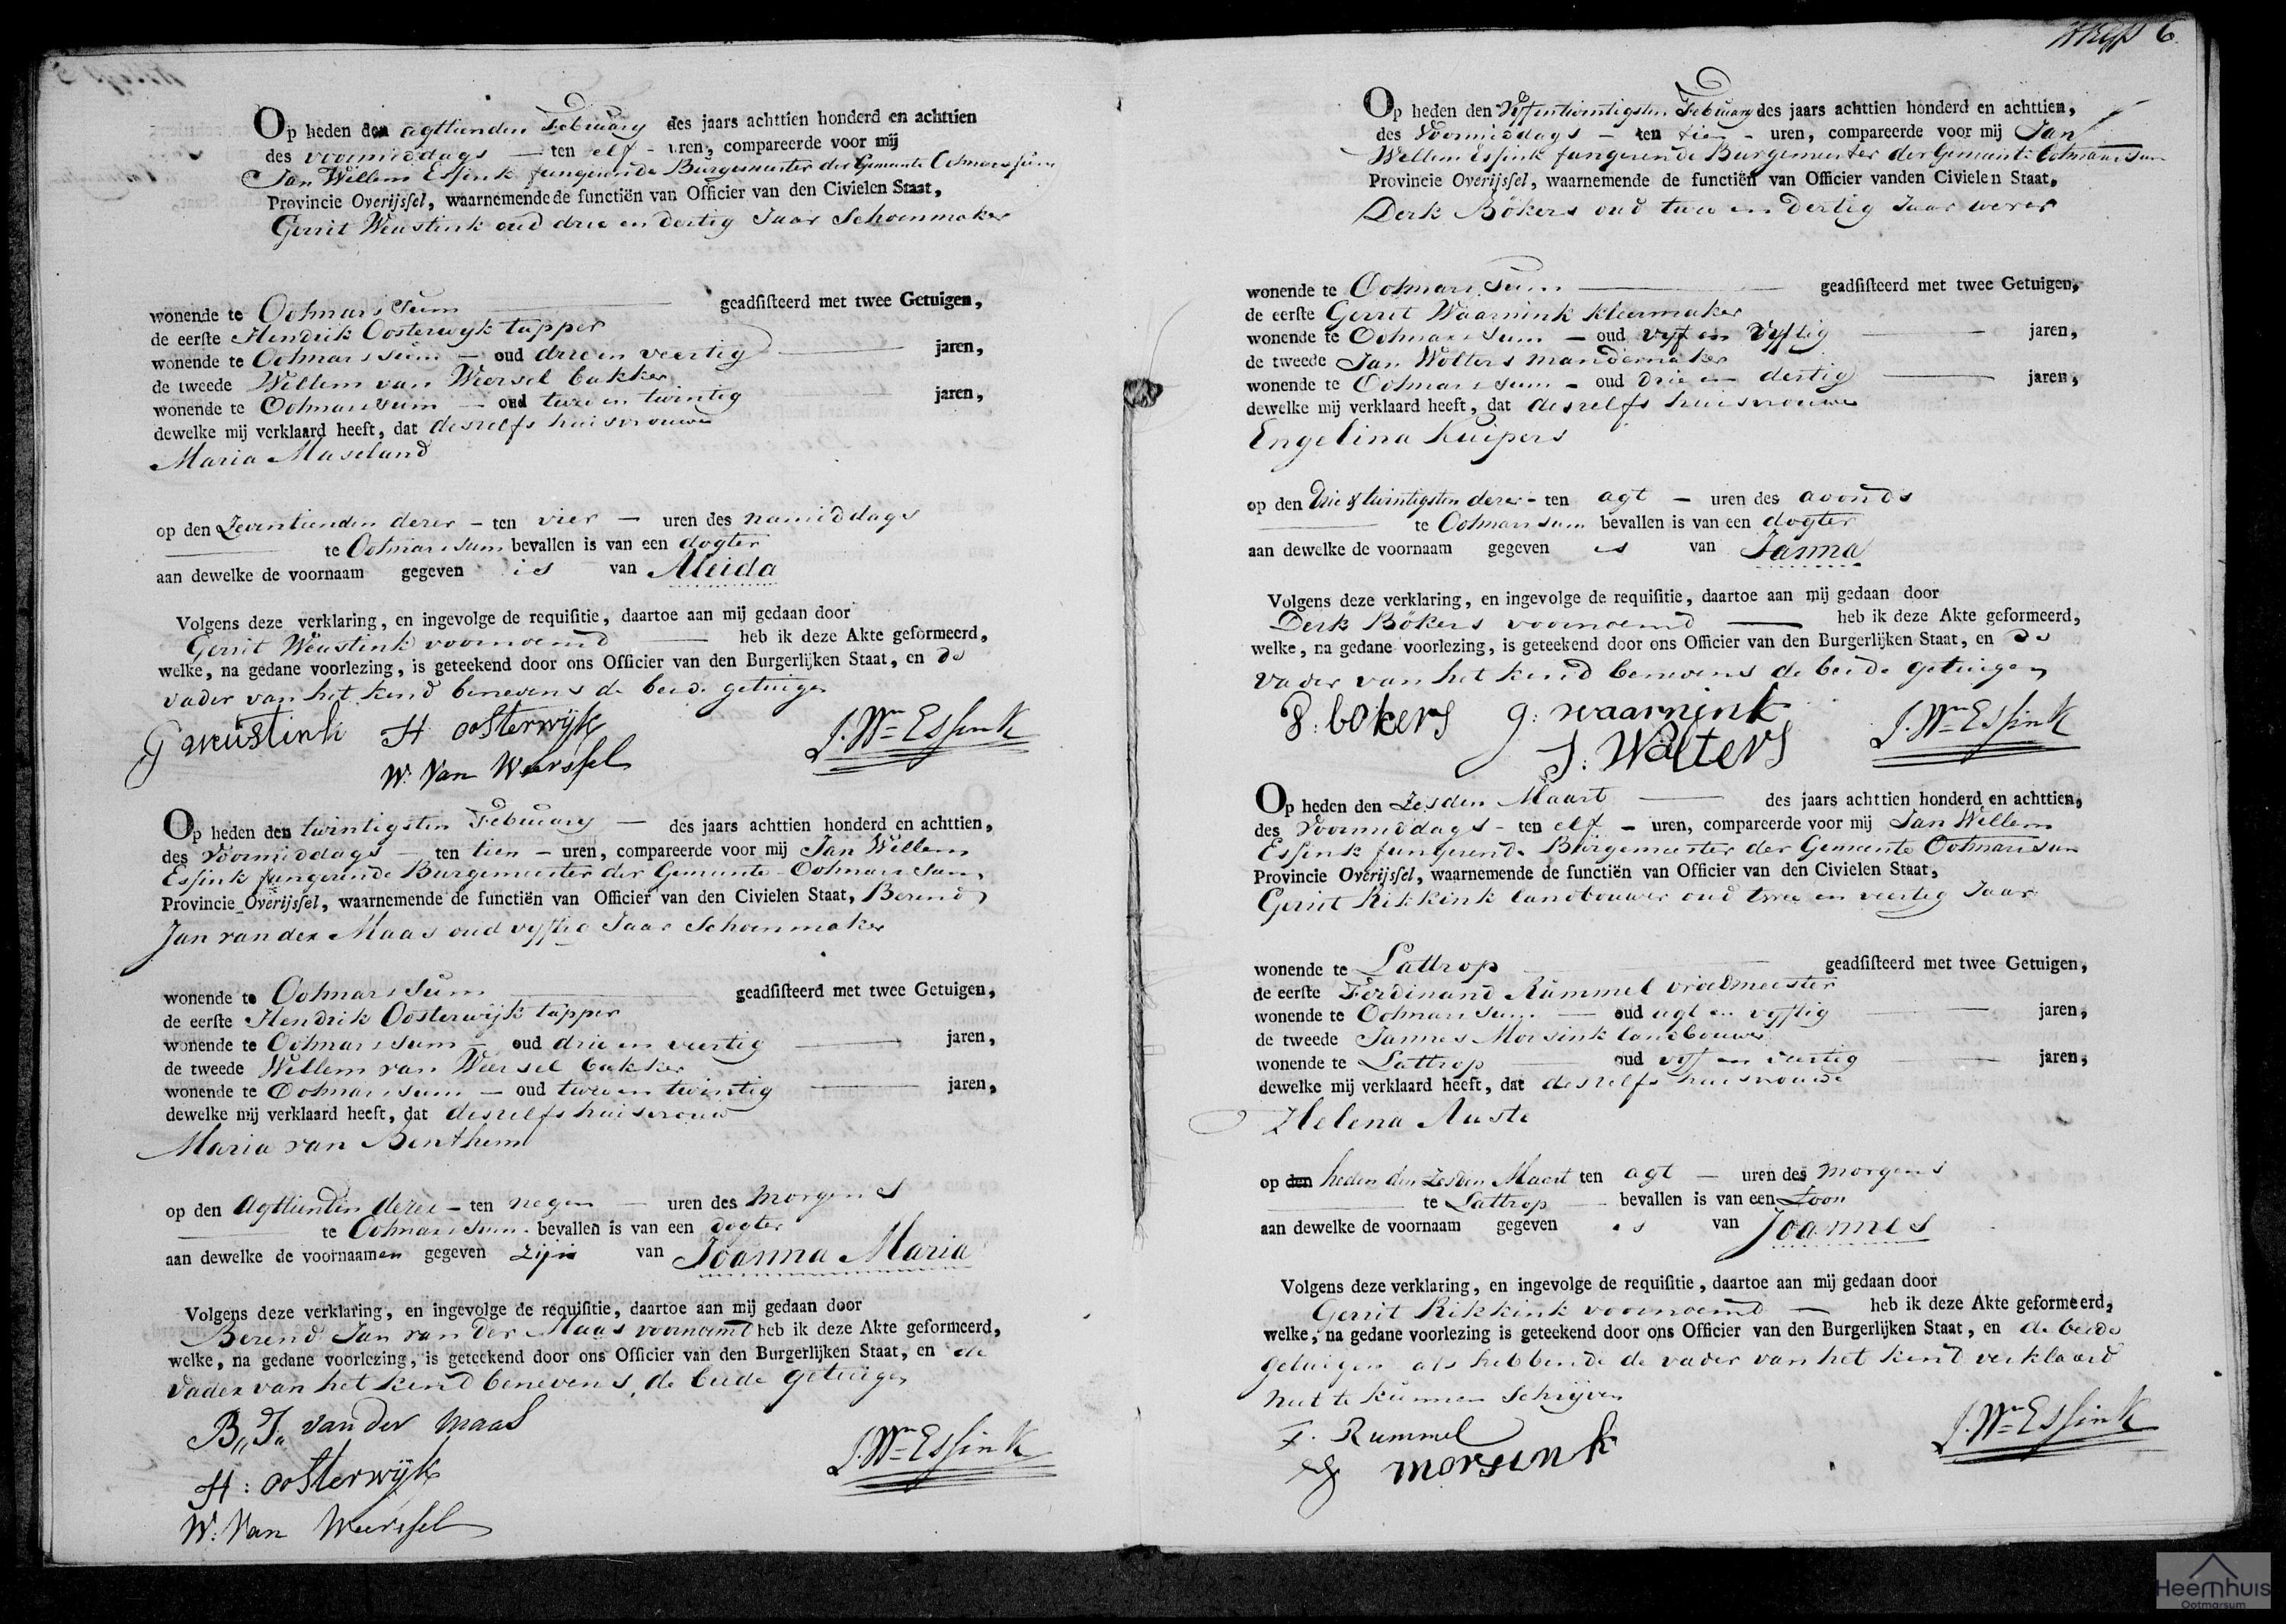 Op heden den agttienden February des jaars achttien honderd en achttien
des voormiddags — ten elf - uren, compareerde voor mij
Jan Willem Essink fungerende Burgemeester der Gemeente Ootmarssum
Provincie Overijssel, waarnemende de functiën van Officier van den Civielen Staat,
Gerrit Weustink oud drie en dertig Jaar Schoenmaker
wonende te Ootmarssum — geadsisteerd met twee Getuigen,
de eerste Hendrik Oosterwyk tapper
wonende te Ootmarssum — oud drie en veertig — jaren,
de tweede Willem van Weersel bakker
wonende te Ootmarssum — oud twee en twintig — jaren,
dewelke mij verklaard heeft, dat deszelfs huisvrouwe
Maria Maseland
op den Zeventienden dezer - ten vier — uren des namiddags
— te Ootmarssum bevallen is van een dogter
aan dewelke de voornaam gegeven is van Aleida
Volgens deze verklaring, en ingevolge de requisitie, daartoe aan mij gedaan door
Gerrit Weustink voornoemd — heb ik deze Akte geformeerd,
welke, na gedane voorlezing, is geteekend door ons Officier van den Burgerlijken Staat, en de
vader van het kend benevens de beide getuigen
G weustink H oosterwijk J. Wm Essink
W. Van Weerssel
Op heden den twintigsten February — des jaars achttien honderd en achttien,
des Voormiddags — ten tien - uren, compareerde voor mij Jan Willem
Essink fungerende Burgemeester der Gemeente Ootmarssum,
Provincie Overijssel, waarnemende de functiën van Officier van den Civielen Staat, Berend
Jan van der Maas oud vyftig Jaar Schoenmaker
wonende te Ootmarssum — geadsisteerd met twee Getuigen,
de eerste Hendrik Oosterwijk tapper
wonende te Ootmarssum — oud drie en veertig — jaren,
de tweede Willem van Weersel bakker
wonende te Ootmarssum — oud twee en twintig — jaren,
dewelke mij verklaard heeft, dat deszelfs huisvrouw
Maria van Benthem
op den Agttienden dezer - ten negen — uren des morgens
— te Ootmarssum - bevallen is van een dogter
aan dewelke de voornaamen gegeven zijn van Joanna Maria
Volgens deze verklaring, en ingevolge de requisitie, daartoe aan mij gedaan door
Berend Jan van der Maas voornoemd heb ik deze Akte geformeerd,
welke, na gedane voorlezing, is geteekend door ons Officier van den Burgerlijken Staat, en de
vader van het kend benevens de beide getuigen
B,, J,, van der Maas
J. Wm Essink
H: oosterwijk
W: Van Weerssel
6.
Op heden den Vyfentwintigsten February des jaars achttien honderd en achttien,
des Voormiddags — ten tien - uren, compareerde voor mij Jan
Willem Essink fungerende Burgemeester der Gemeente Ootmarssum
Provincie Overijssel, waarnemende de functiën van Officier vanden Civielen Staat,
Derk Bökers oud twee en dertig Jaar wever
wonende te Ootmarssum — geadsisteerd met twee Getuigen,
de eerste Gerrit Waarnink kleermaker
wonende te Ootmarssum — oud vyf en vyftig — jaren,
de tweede Jan Wolters mandemaker
wonende te Ootmarssum - oud drie en dertig — jaren,
dewelke mij verklaard heeft, dat deszelfs huisvrouwe
Engelina Kuipers
op den drie & twintigsten dezer - ten agt — uren des avonds
— te Ootmarssum bevallen is van een dogter
aan dewelke de voornaam gegeven is van Janna
Volgens deze verklaring, en ingevolge de requisitie, daartoe aan mij gedaan door
Derk Bökers voornoemd — heb ik deze Akte geformeerd,
welke, na gedane voorlezing, is geteekend door ons Officier van den Burgerlijken Staat, en de
vader van het kend benevens de beide getuigen
D: bökers g: waarnink J. Wm Essink
J: Wolters
Op heden den Zesden Maart — des jaars achttien honderd en achttien,
des Voormiddags - ten elf - uren, compareerde voor mij Jan Willem
Essink fungerende Burgemeester der Gemeente Ootmarssum
Provincie Overijssel, waarnemende de functiën van Officier van den Civielen Staat,
Gerrit Kikkink landbouwer oud twee en veertig Jaar
wonende te Lattrop — geadsisteerd met twee Getuigen,
de eerste Ferdinand Rümmel vroedmeester
wonende te Ootmarssum — oud agt en vyftig — jaren,
de tweede Jannes Morsink landbouwer
wonende te Lattrop — oud vyf en veertig — jaren,
dewelke mij verklaard heeft, dat deszelfs huisvrouwe
Helena Auste
op den heden den Zesden Maart ten agt — uren des morgens
— te Lattrop — bevallen is van een Zoon
aan dewelke de voornaam gegeven is van Joannes
Volgens deze verklaring, en ingevolge de requisitie, daartoe aan mij gedaan door
Gerrit Kikkink voornoemd — heb ik deze Akte geformeerd,
welke, na gedane voorlezing is geteekend door ons Officier van den Burgerlijken Staat, en de beide
getuigen als hebbende de vader van het kend verklaard
niet te kunnen Schrijven
F. Rummel J. Wm Essink
morsink
Heemhuis
Ootmarsum